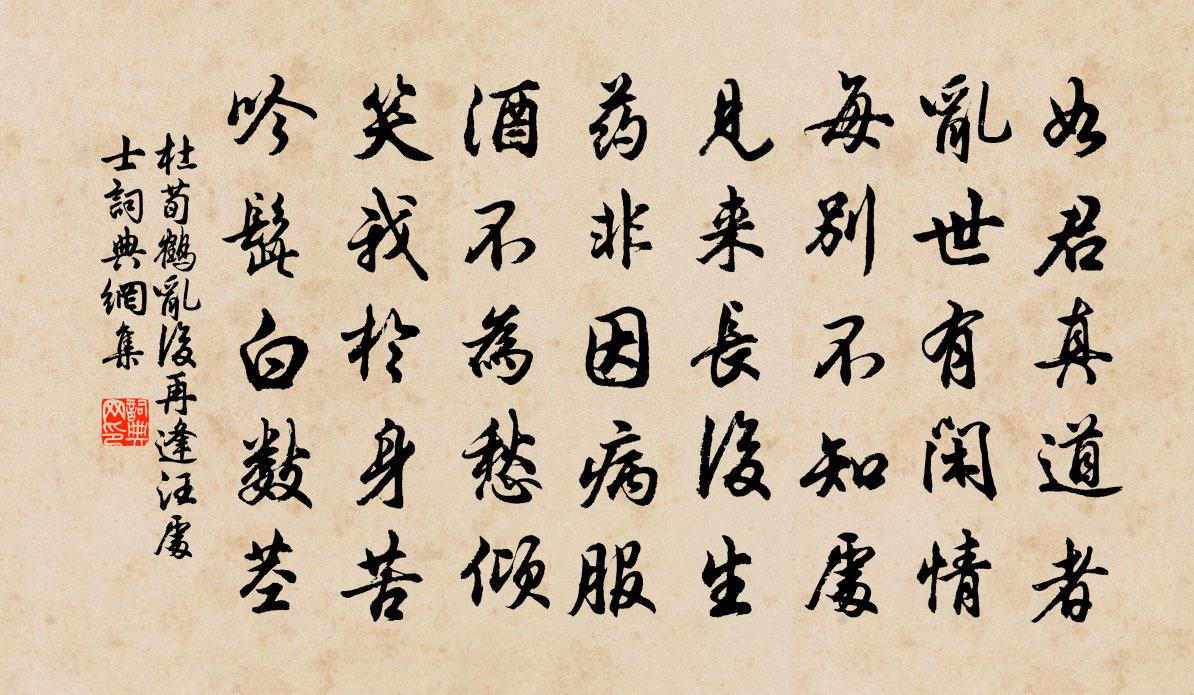 如君真道者
亂世有閑情
每別不知處
見来長後生
药非因病服
酒不為愁傾
笑我於身苦
吟髭白數莖
杜荀鶴亂後再逢汪處
士詞典網集
詞典
网印